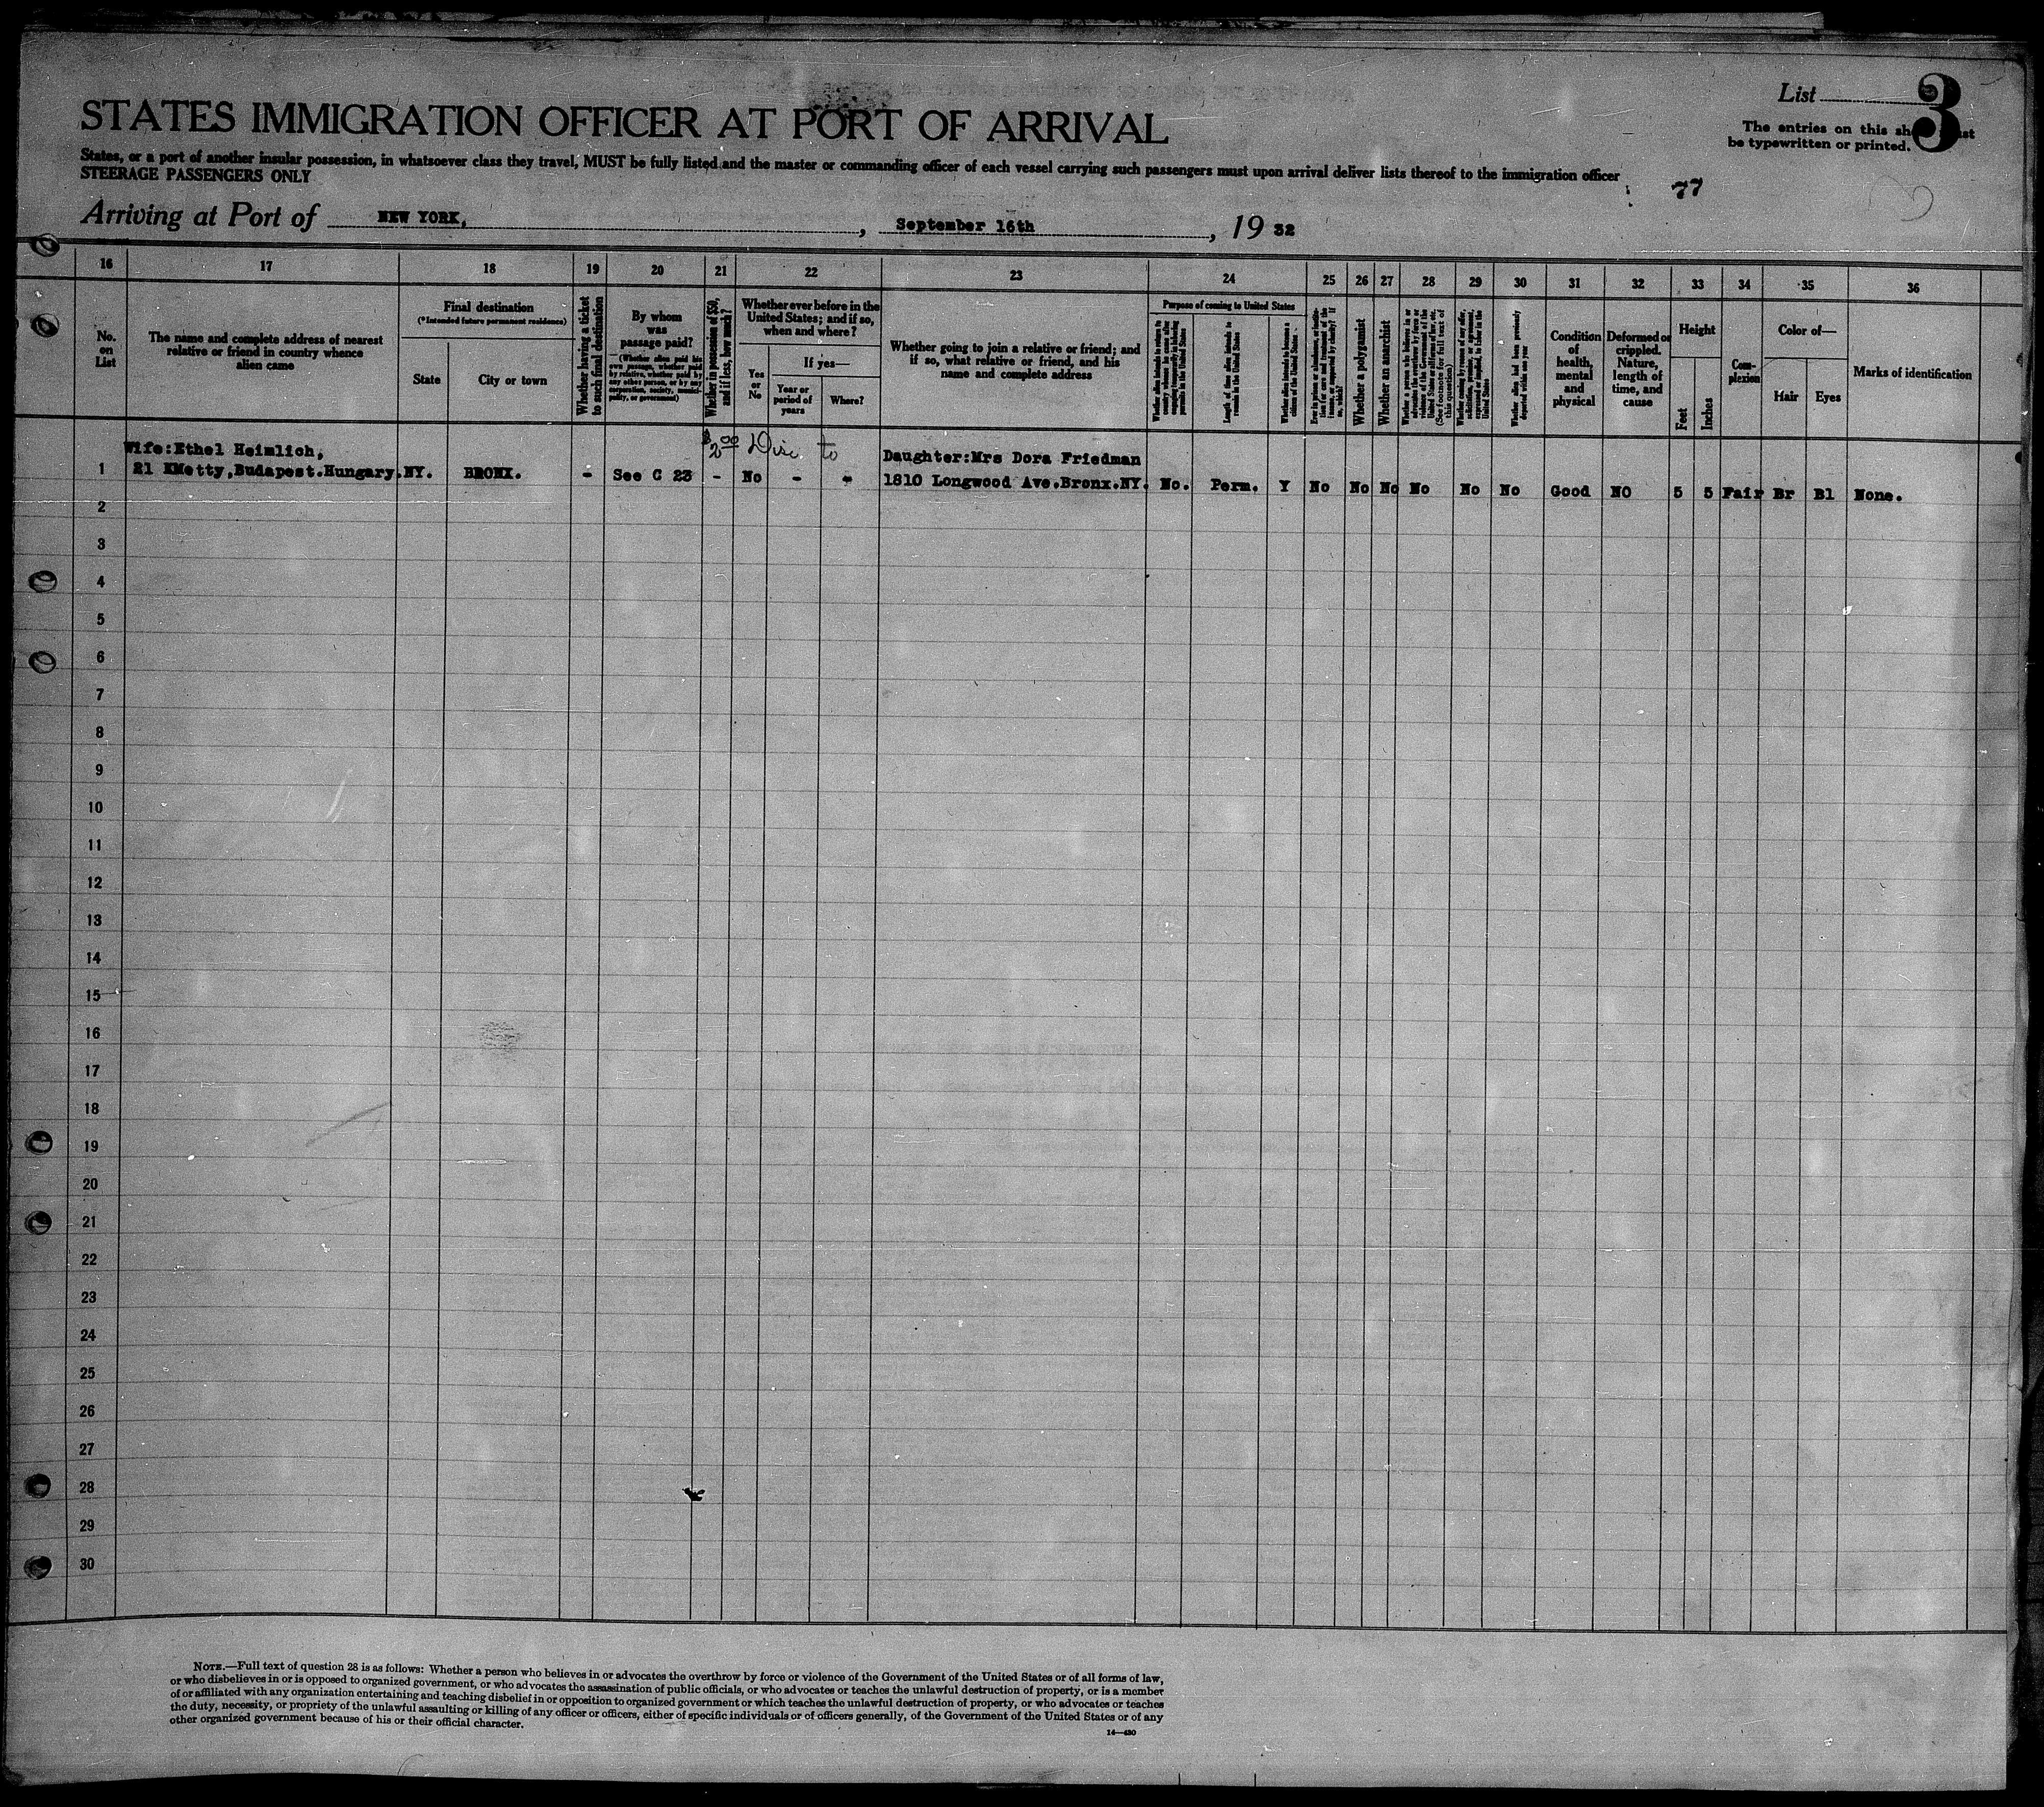 List 3
The entries on this sh
be typewritten or printed.
STATES IMMIGRATION OFFICER AT PORT OF ARRIVAL
States, or a port of another insular possession, in whatsoever class they travel, MUST be fully listed and the master or commanding officer of each vessel carrying such passengers must upon arrival deliver lists thereof to the immigration officer
STEERAGE PASSENGERS ONLY
77
Arriving at Port of NEW YORK, , September 16th , 19 32
16 17 18 19 20 21 22 23 24 25 26 27 28 29 30 31 32 33 34 35 36
No. on List
The name and complete address of nearest relative or friend in country whence alien came
Final destination
(*Intended future permanent residence)
State
City or town
Whether having a ticket to such final destination
By whom was passage paid?
(Whether alien paid his own passage, whether paid by relative, whether paid by any other person, or by any corporation, society, municipality, or government)
Whether in possession of $50, and if less, how much?
Whether ever before in the United States; and if so, when and where?
Yes or No
If yes—
Year or period of years
Where?
Whether going to join a relative or friend; and if so, what relative or friend, and his name and complete address
Purpose of coming to United States
Length of time alien intends to remain in the United States
Whether alien intends to become a citizen of the United States
Whether a polygamist
Whether an anarchist
Whether alien had been previously deported within one year
Condition of health, mental and physical
Deformed or crippled. Nature, length of time, and cause
Height
Feet
Inches
Complexion
Color of—
Hair
Eyes
Marks of identification
Wife:Ethel Heimlich,
$2.00
Daughter:Mrs Dora Friedman
1 21 KMetty,Budapest.Hungary. NY. BRONX. - See C 23 - No - - 1810 Longwood Ave.Bronx.NY. No. Perm. Y No No No No No No Good NO 5 5 Fair Br Bl None.
2
3
4
5
6
7
8
9
10
11
12
13
14
15
16
17
18
19
20
21
22
23
24
25
26
27
28
29
30
NOTE.—Full text of question 28 is as follows: Whether a person who believes in or advocates the overthrow by force or violence of the Government of the United States or of all forms of law,
or who disbelieves in or is opposed to organized government, or who advocates the assassination of public officials, or who advocates or teaches the unlawful destruction of property, or is a member
of or affiliated with any organization entertaining and teaching disbelief in or opposition to organized government or which teaches the unlawful destruction of property, or who advocates or teaches
the duty, necessity, or propriety of the unlawful assaulting or killing of any officer or officers, either of specific individuals or of officers generally, of the Government of the United States or of any
other organized government because of his or their official character.
14—480